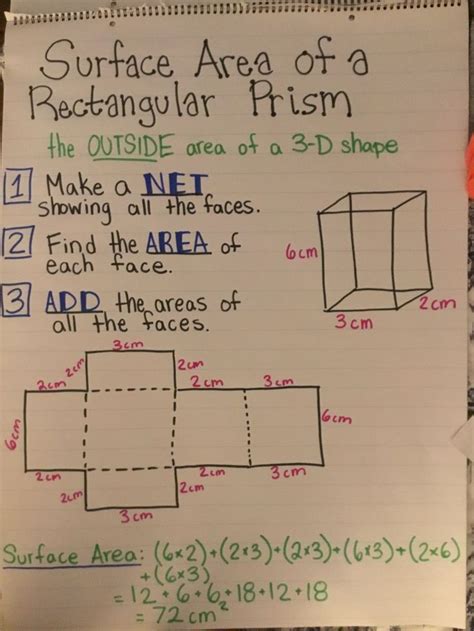 Surface Area of a
Rectangular Prism
the OUTSIDE area of a 3-D shape
1 Make a NET
showing all the faces.
2 Find the AREA of
each face.
3 ADD the areas of
all the faces.
6cm
2cm
3cm
3cm
2cm
2cm
2cm
2cm
3cm
6cm
6cm
2cm
2cm
3cm
2cm
2cm
3cm
Surface Area: (6×2)+(2×3)+(2×3)+(6×3)+(2×6)
+(6×3)
= 12+6+6+18+12+18
= 72 cm²